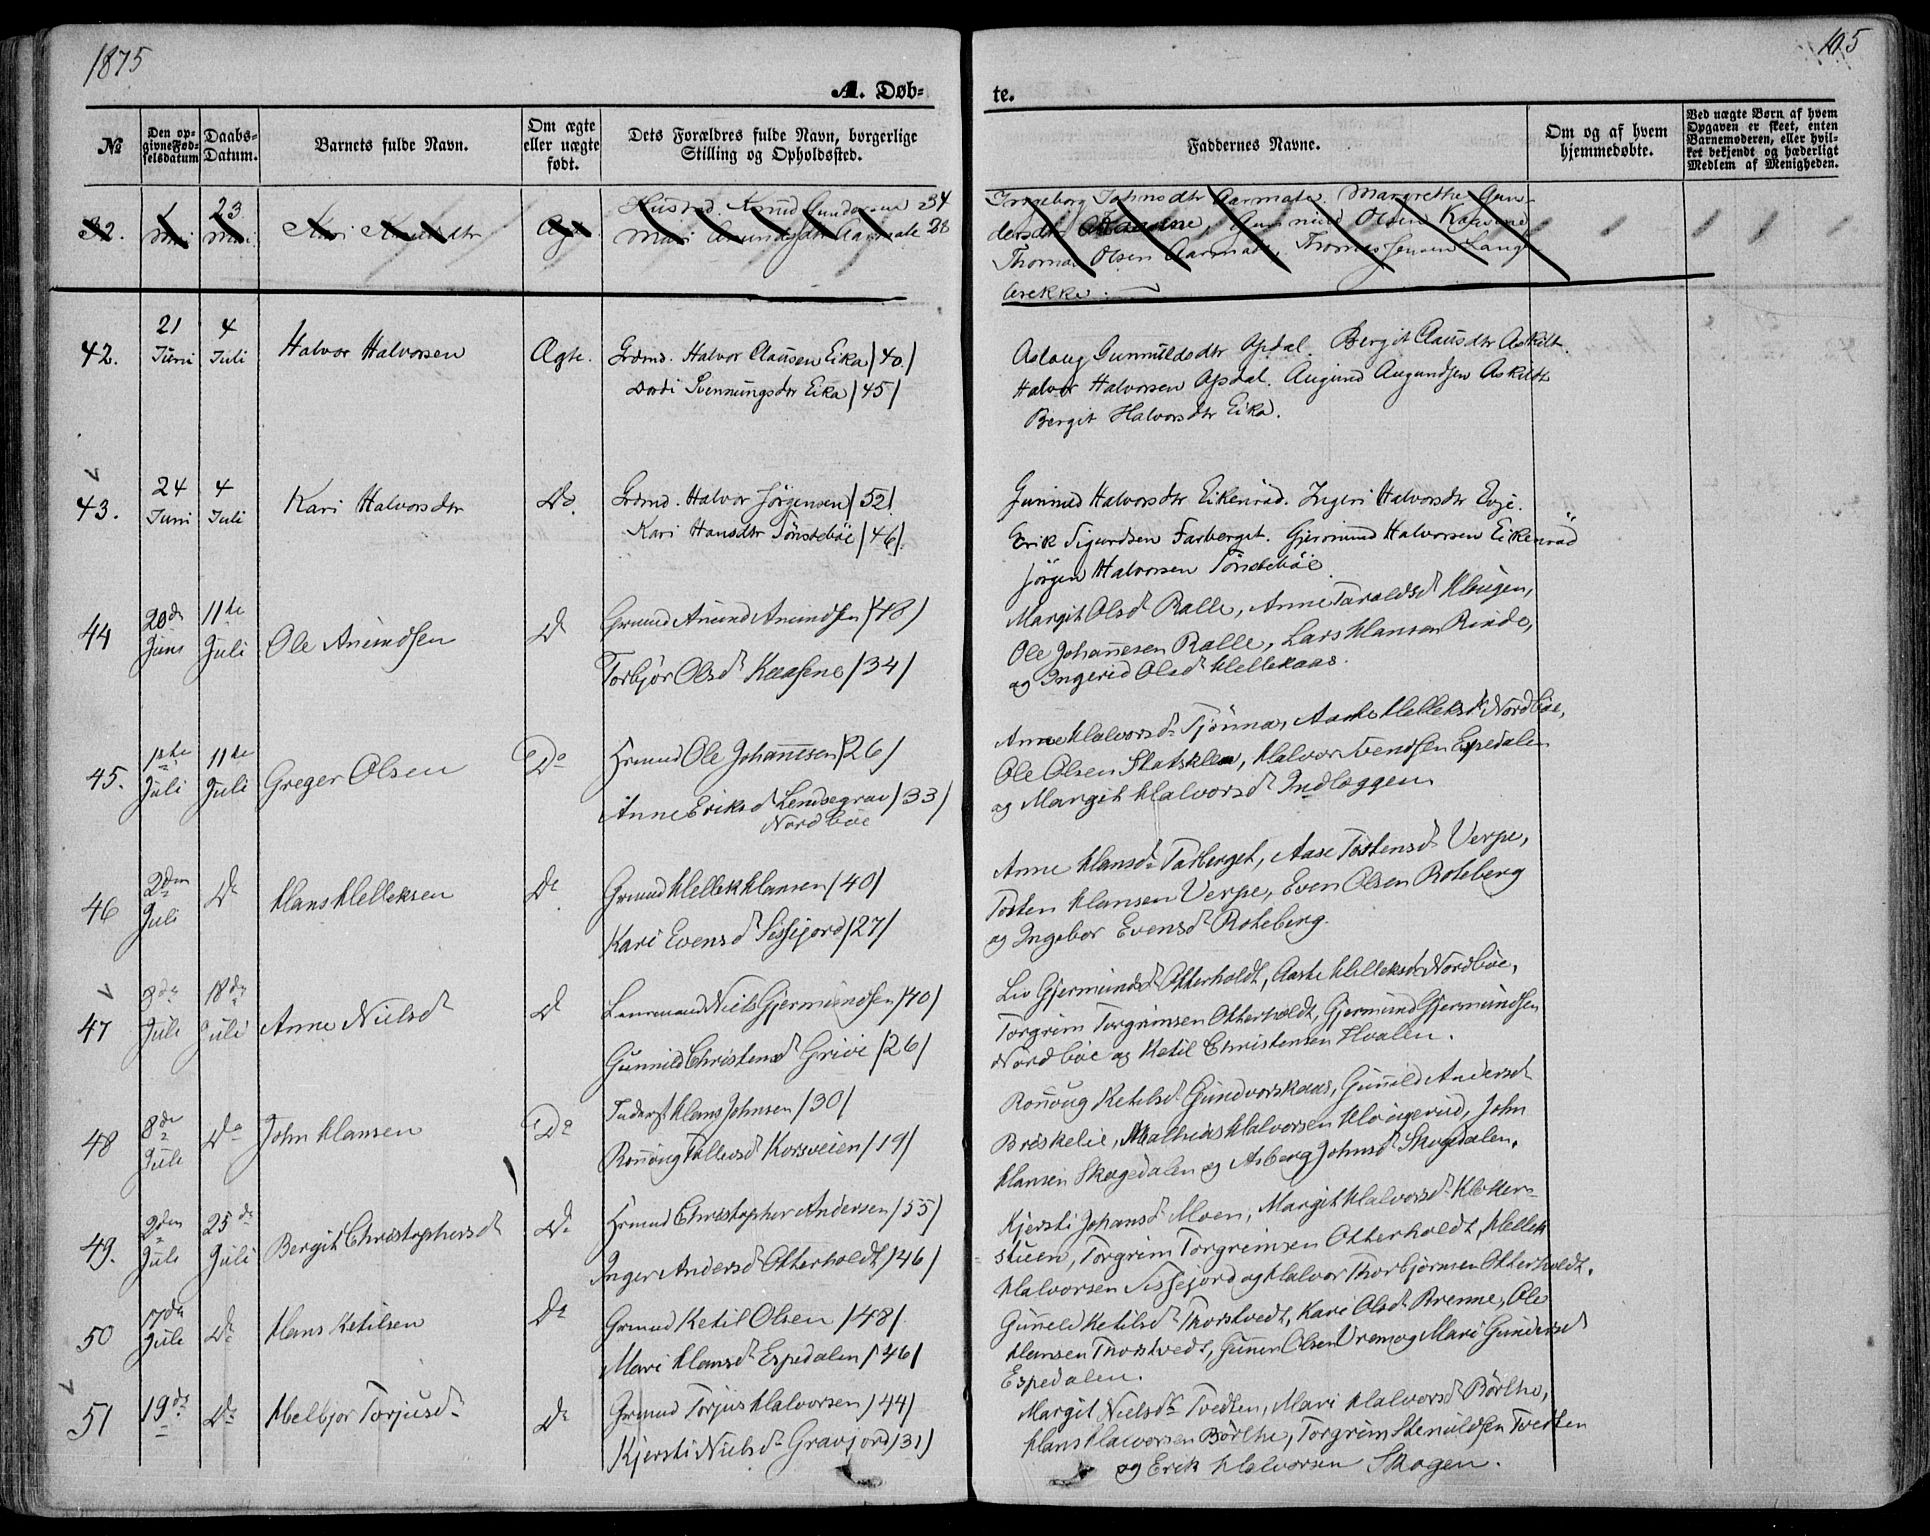 1875
105
A. Døb-
te.
№
Den op-
givne Fød-
selsdatum
Daabs-
Datum.
Barnets fulde Navn.
Om ægte
eller uægte
født.
Dets Forældres fulde Navn, borgerlige
Stilling og Opholdssted.
Faddernes Navne.
Om og af hvem
hjemmedøbte.
Ved uægte Børn af hvem
Opgaven er skeet, enten
Barnemoderen, eller hvil-
ket bekjendt og hæderligt
Medlem af Menigheden.
32. 1 Mai 23 Mai Kari Knudsdtr Ægte Husmd. Knud Gundersen 34
Mari Amundsdtr Aarmate 28
Ingeborg Johnsdtr Aarmate. Margrethe Gun-
dersdtr Gunnuld Olsen Kaasene
Thomas Olsen Aarmate. Thomas Jensen Lang
brekke.
42. 21 Juni 4 Juli Halvor Halvorsen Ægte. Grdmd. Halvor Clausen Eika /40/
Dordi Svennungsdtr Eika /45/
Aslaug Gunnuldsdtr Opdal. Bergit Clausdtr Askilt.
Halvor Halvorsen Opdal. Augund Augundsen Askildt
Bergit Halvorsdtr Eika.
43. 24 Juni 4 Juli Kari Halvorsdtr Do. Grdmd. Halvor Jörgensen /52/.
Kari Hansdtr Tönsteböe /46/.
Gunnild Halvorsdtr Eikenrød. Ingeri Halvorsdtr Evje.
Erik Sigurdsen Farberget. Gjermund Halvorsen Eikenrød
Jörgen Halvorsen Tönsteböe
44 20de Juni 11te Juli Ole Anundsen Do Grmd Anund Anundsen /48/
Torbjör Olsd Kaasene /34/
Margit Olsd Ralle, Anne Taraldsd Klevgen,
Ole Johannesen Ralle, Lars Hansen Rinde,
og Ingerid Olsd Hellekaas.
45. 1ste Juli 11te Juli Greger Olsen Do Hrmd Ole Johannesen /26/
Anne Eriksd Lendsegrav /33/
Nordböe
Anne Halvorsd Tjönna, Aaste Helleksd Nordböe,
Ole Olsen Slatsklev, Halvor Svendsen Espedalen
og Margit Halvorsd Indlæggen
46 2den Juli Do Hans Helleksen Do Grmd Hellek Hansen /40/
Kari Evensd Sissjord /27/
Anne Hansd Farberget, Aase Tostensd Verpe,
Tosten Hansen Verpe, Even Olsen Roteberg
og Ingebor Evensd Roteberg.
47 3de Juli 18de Juli Anne Nielsd Do Niels Gjermundsen /40/
Gunnild Christensd Grivi /26/
Liv Gjermundsd Otterholdt, Aaste Helleksd Nordböe,
Torgrim Torgrimsen Otterholdt, Gjermund Gjermundsen
Nordböe og Ketil Christensen Hvalen.
48 8de Juli Do John Hansen Do Inderst Hans Johnsen /30/
Ronnoug Tallevsd Korsveien /19/
Ronnoug Ketilsd Gundvorskaas, Gunnild Andersd
Briskelie, Mathias Halvorsen Haugerud, John
Hansen Skogedalen og Asberg Johnsd Skogedalen.
49. 2den Juli 25de Juli Bergit Christophersd Do Hrmd Christopher Andersen /55/
Inger Andersd Otterholdt /46/
Kjersti Johansd Moen, Margit Halvorsd Klokker-
stuen, Torgrim Torgrimsen Otterholdt, Hellek
Halvorsen Sissjord og Halvor Thorbjörnsen Otterholdt.
50 17de Juli Do Hans Ketilsen Do Grmd Ketil Olsen /48/.
Mari Hansd Espedalen /46/
Gunnild Ketilsd Thorstvedt, Kari Olsd Brenne, Ole
Hansen Thorstvedt, Gunne Olsen Vrem og Mari Gundersd
Espedalen.
51 19de Do Helbjor Torjusd Do Grmd Torjus Halvorsen /44/
Kjersti Nielsd Gravjord /31/
Margit Nielsd Tvedten, Mari Halvorsd Börthe,
Hans Halvorsen Börthe, Torgrim Stenuldsen Tvedten
og Erik Halvorsen Skogen.